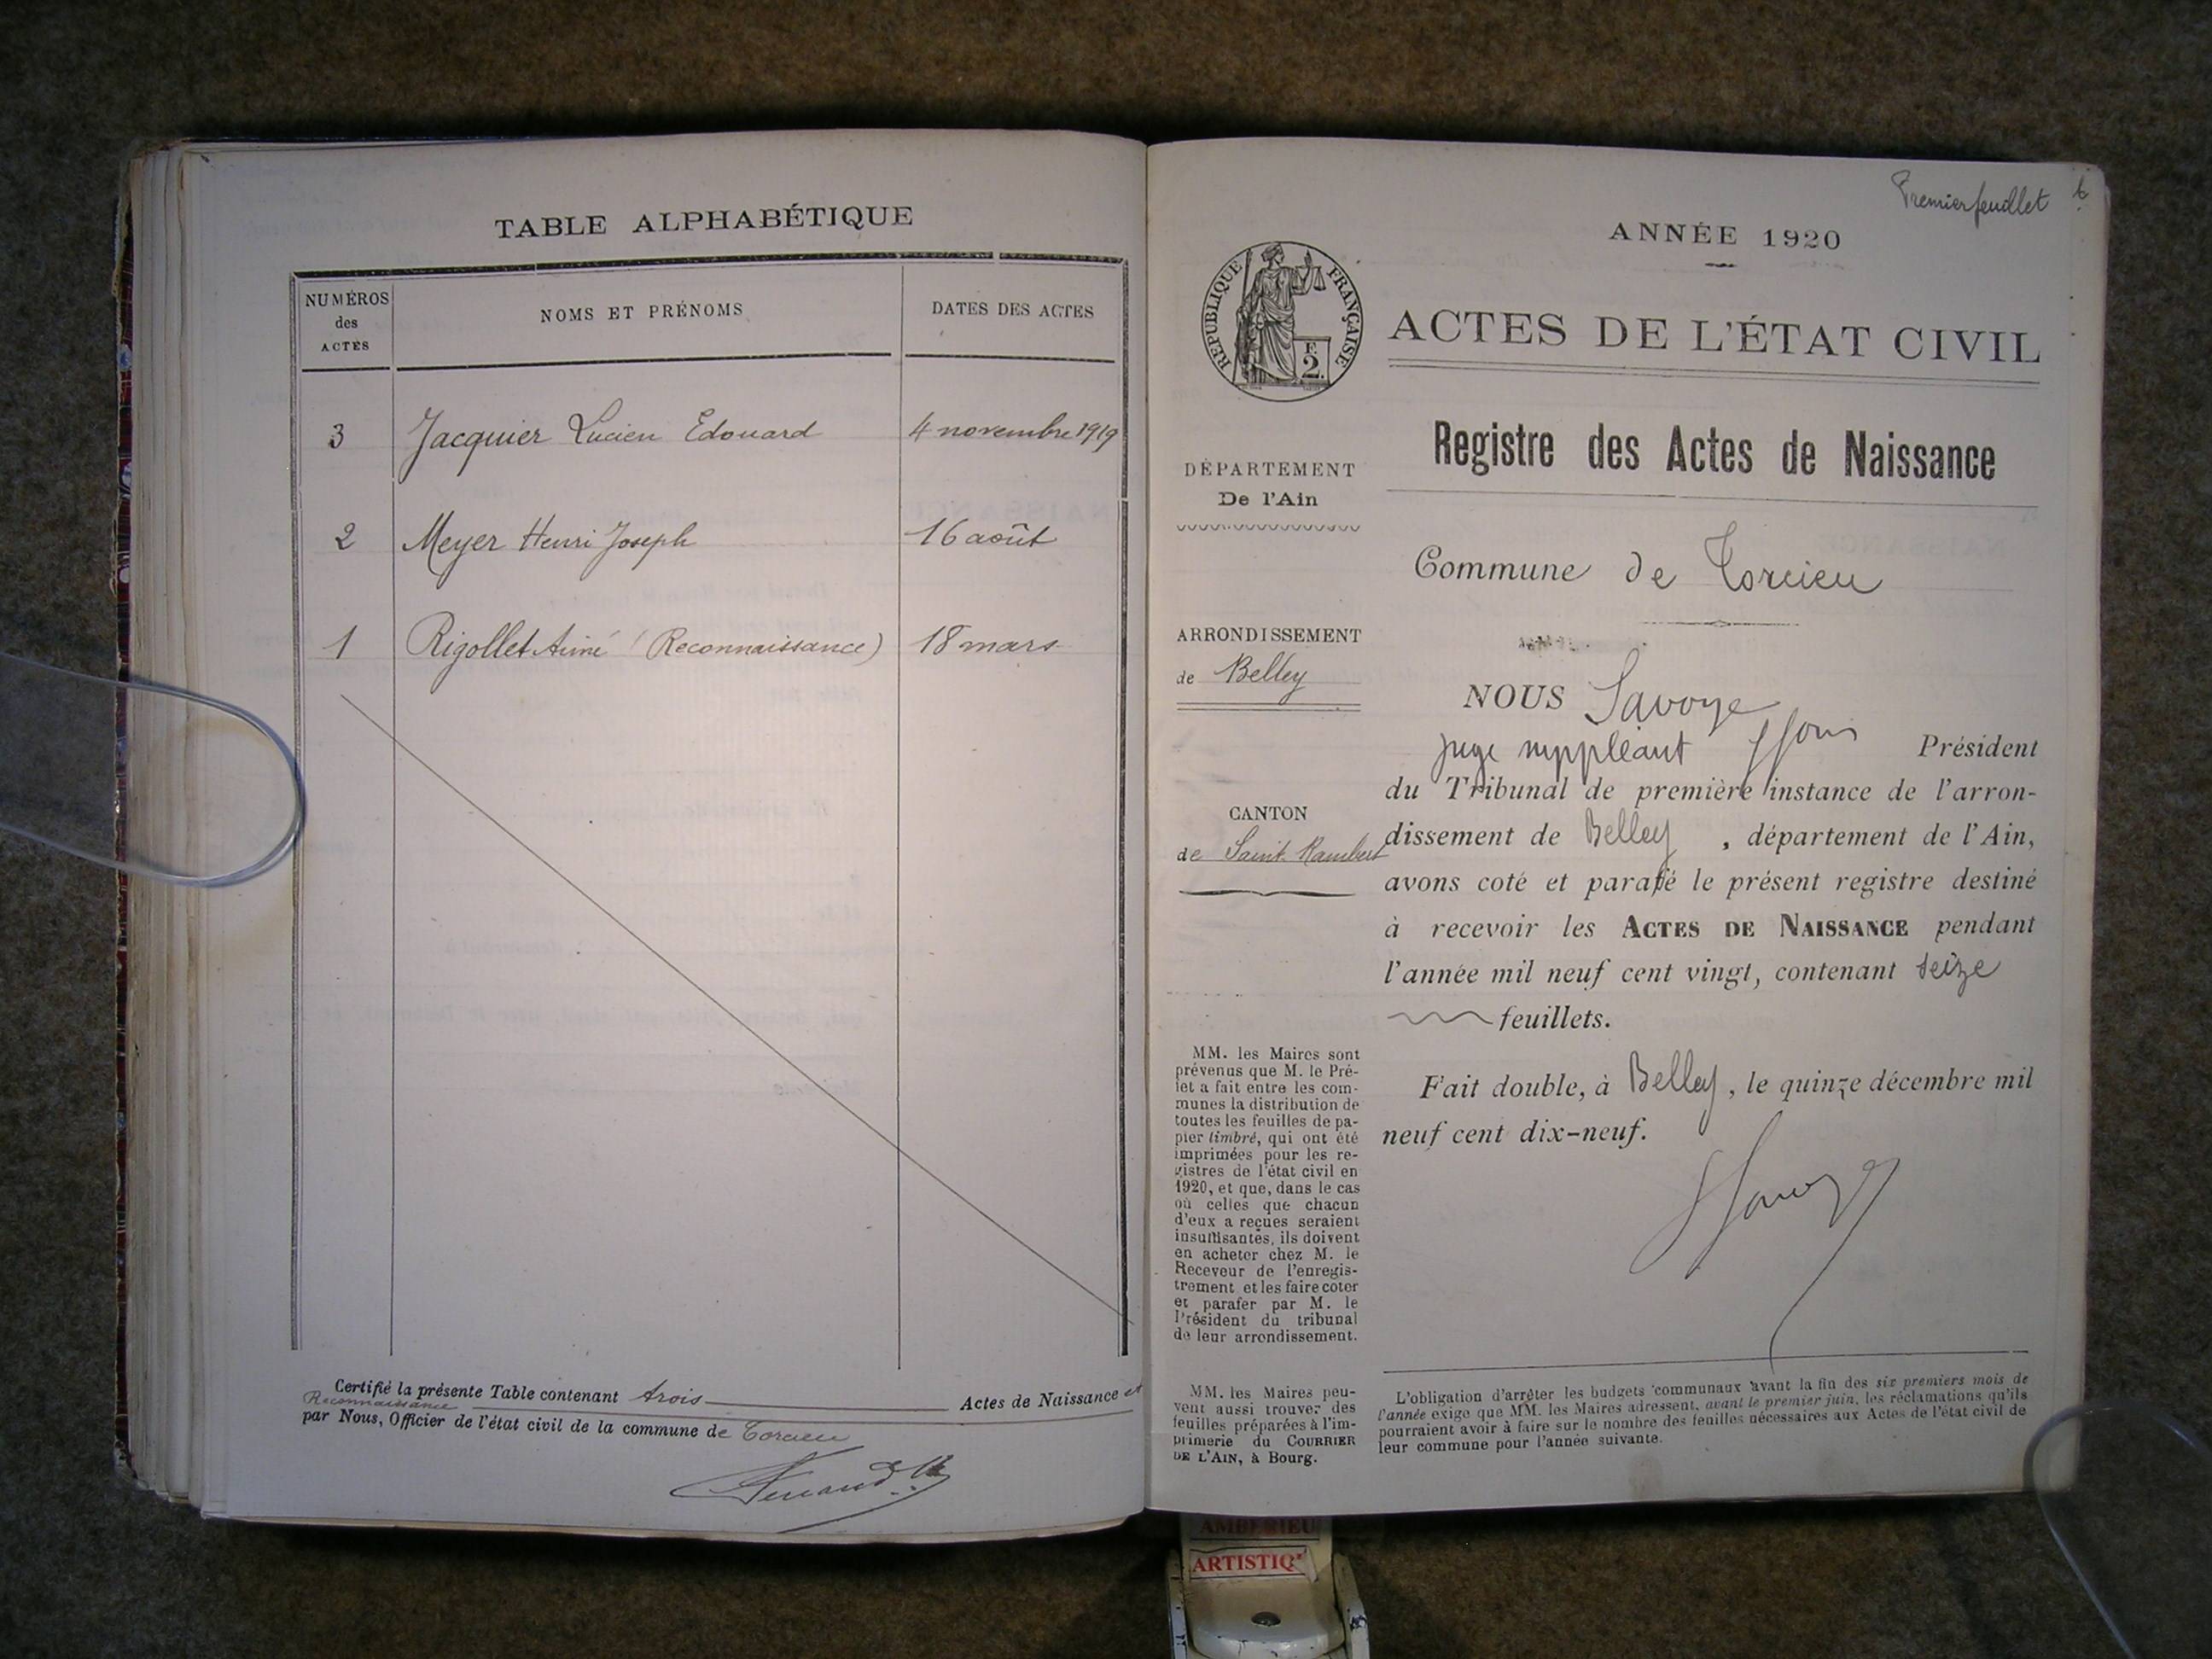 TABLE ALPHABÉTIQUE
NUMÉROS
des
ACTES
NOMS ET PRÉNOMS
DATES DES ACTES
3 Jacquier Lucien Edouard 4 novembre 1919
2 Meyer Henri Joseph 16 août
1 Rigollet Aimé (Reconnaissance) 18 mars
Certifié la présente Table contenant trois Actes de Naissance et
Reconnaissance
par Nous, Officier de l'état civil de la commune de Torcieu
Premier feuillet
ANNÉE 1920
RÉPUBLIQUE FRANÇAISE
F.
2.
ACTES DE L'ÉTAT CIVIL
Registre des Actes de Naissance
DÉPARTEMENT
De l'Ain
Commune de Torcieu
ARRONDISSEMENT
de Belley
CANTON
de Saint-Rambert
NOUS Savoye
juge suppléant Président
du Tribunal de première instance de l'arron-
dissement de Belley, département de l'Ain,
avons coté et parafé le présent registre destiné
à recevoir les ACTES DE NAISSANCE pendant
l'année mil neuf cent vingt, contenant seize
feuillets.
Fait double, à Belley, le quinze décembre mil
neuf cent dix-neuf.
MM. les Maires sont
prévenus que M. le Pré-
fet a fait entre les com-
munes la distribution de
toutes les feuilles de pa-
pier timbré, qui ont été
imprimées pour les re-
gistres de l'état civil en
1920, et que, dans le cas
où celles que chacun
d'eux a reçues seraient
insuffisantes, ils doivent
en acheter chez M. le
Receveur de l'enregis-
trement et les faire coter
et parafer par M. le
Président du tribunal
de leur arrondissement.
MM. les Maires peu-
vent aussi trouver des
feuilles préparées à l'im-
primerie du COURRIER
DE L'AIN, à Bourg.
L'obligation d'arrêter les budgets communaux avant la fin des six premiers mois de
l'année exige que MM. les Maires adressent, avant le premier juin, les réclamations qu'ils
pourraient avoir à faire sur le nombre des feuilles nécessaires aux Actes de l'état civil de
leur commune pour l'année suivante.
AMBERIEU
ARTISTIQ'